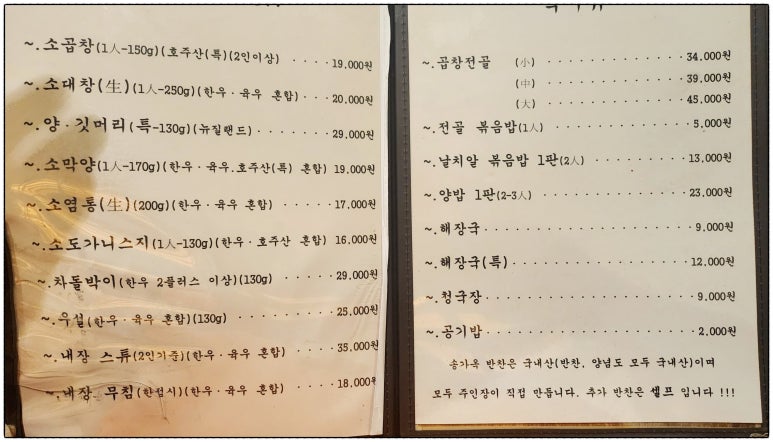 ~.소곱창(1人-150g)(호주산(특)(2인이상) ‧‧‧‧19,000원
~.소대창(生)(1人-250g)(한우·육우 혼합) ‧‧‧‧‧20,000원
~.양·깃머리(특-130g)(뉴질랜드)‧‧‧‧‧‧‧‧29,000원
~.소막양(1人-170g)(한우·육우.호주산(특) 혼합) 19,000원
~.소염통(生)(200g)(한우·육우 혼합) ‧‧‧‧‧‧17,000원
~.소도가니스지(1人-130g)(한우·호주산 혼합) 16,000원
~.차돌박이(한우 2플러스 이상)(130g) ‧‧‧‧‧‧29,000원
~.우설(한우·육우 혼합)(130g) ‧‧‧‧‧‧‧‧‧25,000원
~.내장 스튜(2인기준)(한우·육우 혼합) ‧‧‧‧‧35,000원
~.내장 무침(한접시)(한우·육우 혼합) ‧‧‧‧‧18,000원
~.곱창전골 (小) ‧‧‧‧‧‧‧‧‧‧‧‧34,000원
(中) ‧‧‧‧‧‧‧‧‧‧‧‧39,000원
(大) ‧‧‧‧‧‧‧‧‧‧‧‧45,000원
~.전골 볶음밥(1人) ‧‧‧‧‧‧‧‧‧‧‧‧5,000원
~.날치알 볶음밥 1판(2人) ‧‧‧‧‧‧‧‧13,000원
~.양밥 1판(2-3人) ‧‧‧‧‧‧‧‧‧‧‧‧23,000원
~.해장국 ‧‧‧‧‧‧‧‧‧‧‧‧‧‧‧‧9,000원
~.해장국(특) ‧‧‧‧‧‧‧‧‧‧‧‧‧‧12,000원
~.청국장 ‧‧‧‧‧‧‧‧‧‧‧‧‧‧‧‧9,000원
~.공기밥 ‧‧‧‧‧‧‧‧‧‧‧‧‧‧‧‧2,000원
송가옥 반찬은 국내산(반찬, 양념도 모두 국내산)이며
모두 주인장이 직접 만듭니다. 추가 반찬은 셀프 입니다 !!!